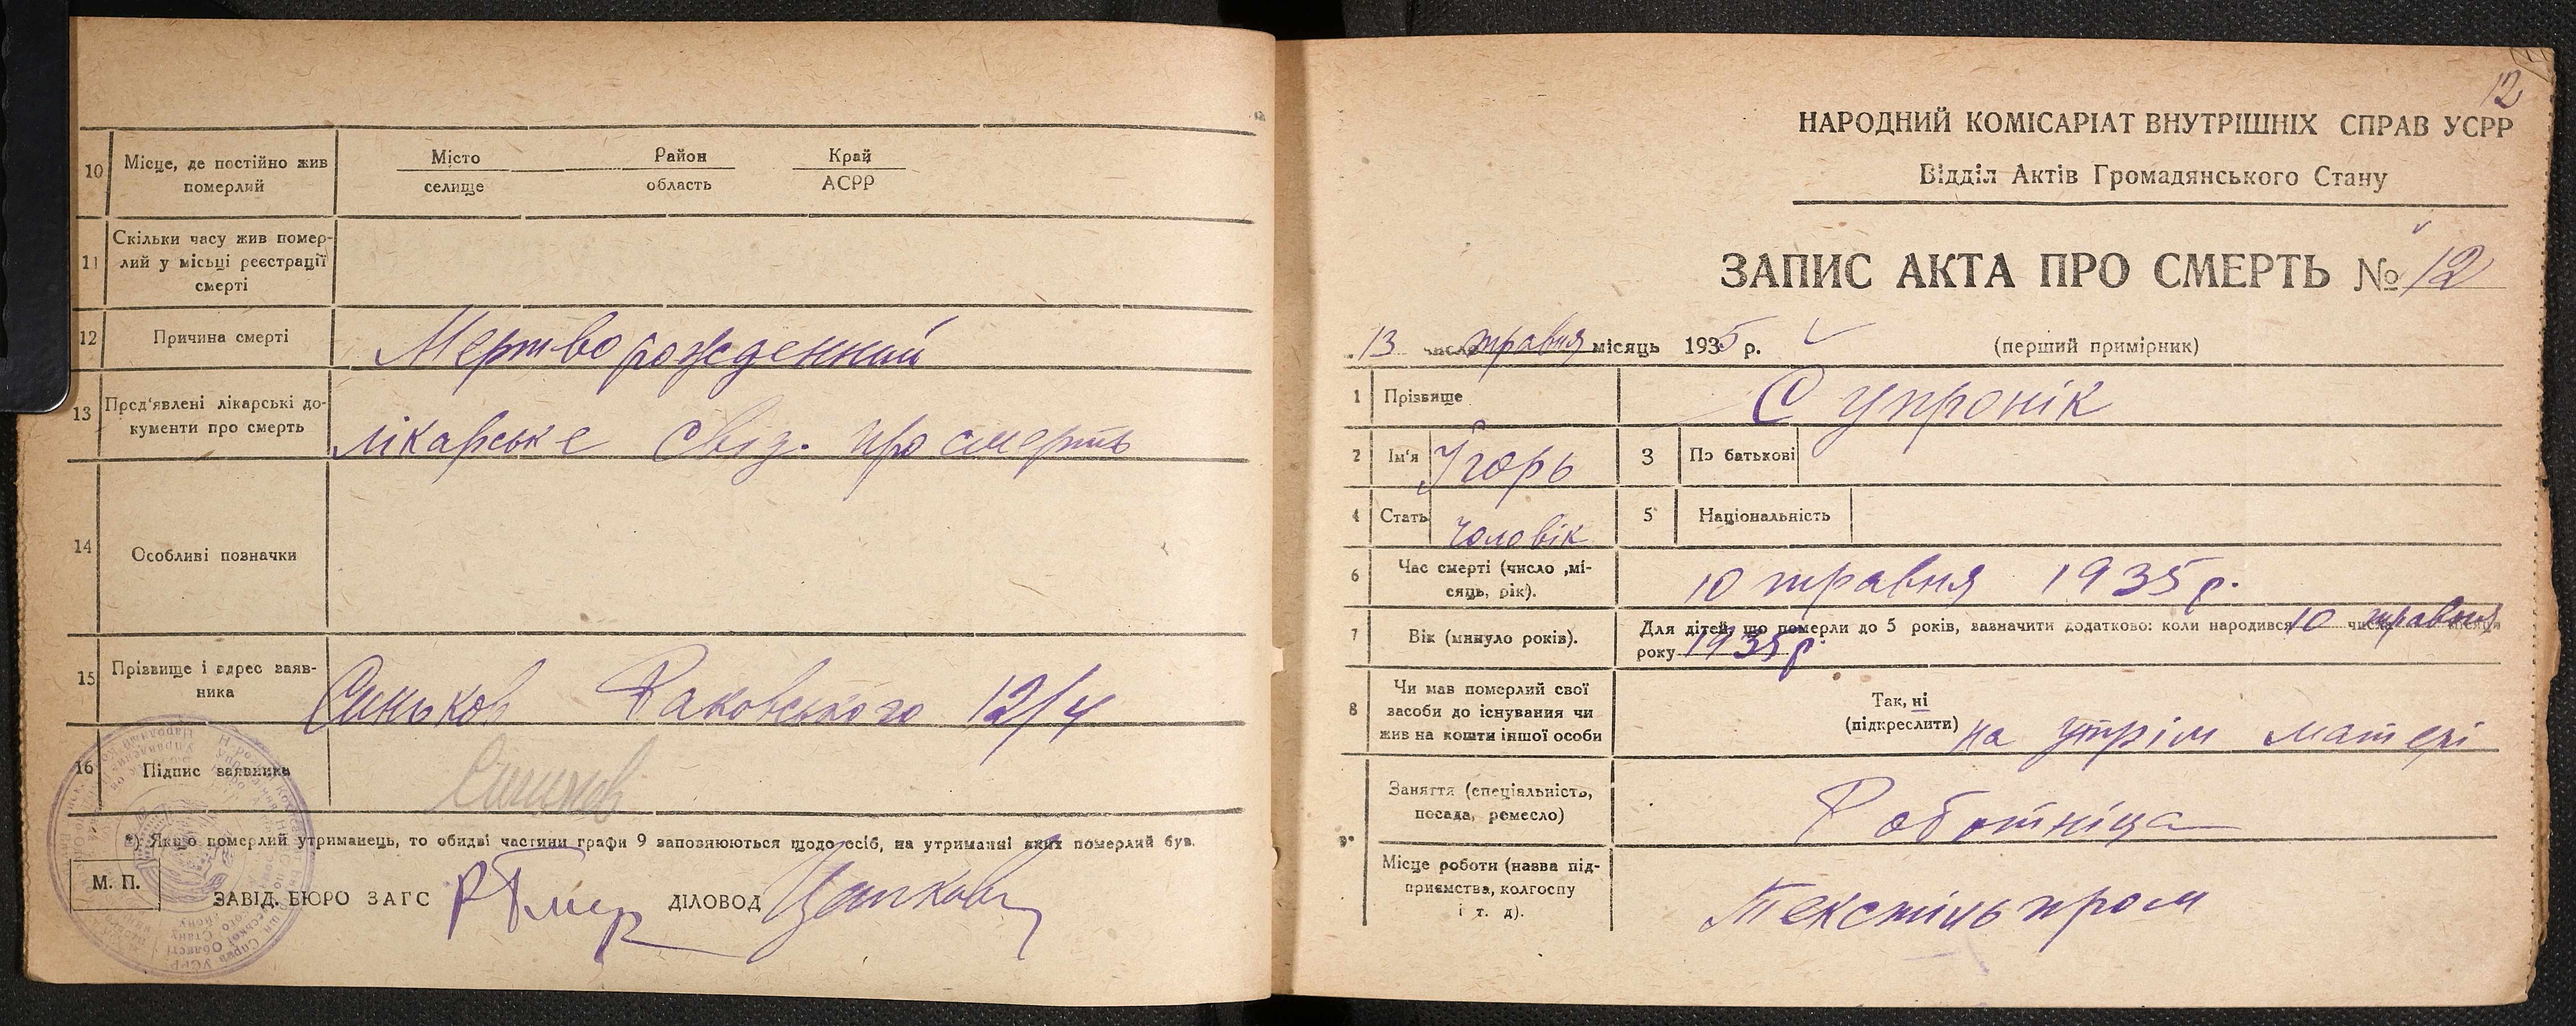 10 Місце, де постійно жив померлий
Місто селище
Район область
Край АСРР
11 Скільки часу жив померлий у місьці реєстрації смерті
12 Причина смерті Мертво рожденний
13 Пред'явлені лікарські документи про смерть лікарське свід. про смерть
14 Особливі позначки
15 Прізвище і адрес заявника Синьков Раковського 12/4
16 Підпис заявника
*) Якщо померлий утриманець, то обидві частини графи 9 заповнюються щодо осіб, на утриманні яких померлий був.
М. П.
ЗАВІД. БЮРО ЗАГС
ДІЛОВОД
12
НАРОДНИЙ КОМІСАРІАТ ВНУТРІШНІХ СПРАВ УСРР
Відділ Актів Громадянського Стану
ЗАПИС АКТА ПРО СМЕРТЬ № 12
13 число травня місяць 1935 р. (перший примірник)
1 Прізвище Супронік
2 Ім'я Ігорь 3 По батькові
4 Стать чоловік 5 Національність
6 Час смерті (число ,місяць, рік). 10 травня 1935 р.
7 Вік (минуло років). Для дітей, що померли до 5 років, зазначити додатково: коли народився 10 числа травня місяця
року 1935 р.
8 Чи мав померлий свої засоби до існування чи жив на кошти іншої особи
Так, ні
(підкреслити) на утрім матері
Заняття (спеціальність, посада, ремесло) Работніца
9*
Місце роботи (назва підприємства, колгоспу і т. д). Текстільпром